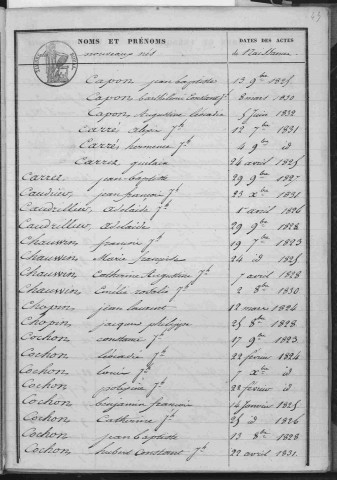 43
NOMS ET PRÉNOMS DATES DES ACTES
nouveaux nés de Naissance
Capon jean baptiste 13 9bre 1825
Capon Barthélemi Constant J.h 8 mars 1830
Capon Augustine 5 juin 1832
Carré alexis J.h 12 7bre 1831
Carré hermance J.h 4 9bre id
Carré 24 avril 1825
Carrez jean baptiste 29 9bre 1827
Caudrier, jean françois J.h 23 Xbre 1831
Caudrillier, adelaïde J.h 1 avril 1826
Caudrillier, adelaïde 29 9bre 1828
Chauwin françois J.h 19 7bre 1823
Chauwin Marie françoise 24 id 1825
Chauwin Catherine Augustine J.h 7 avril 1828
Chauwin Emélie rosalie J.h 2 8bre 1830
Chopin jean laurent 12 mars 1824
Chopin jacques philippe 25 8bre 1828
Cochon constant J.h 17 9bre 1823
Cochon léocadie J.h 22 février 1824
Cochon louis J.h 7 Xbre id
Cochon J.h 28 février id
Cochon benjamin françois 14 Janvier 1825
Cochon Catherine J.h 25 id 1826
Cochon jean baptiste 13 8bre 1828
Cochon hubert Constant J.h 22 avril 1831